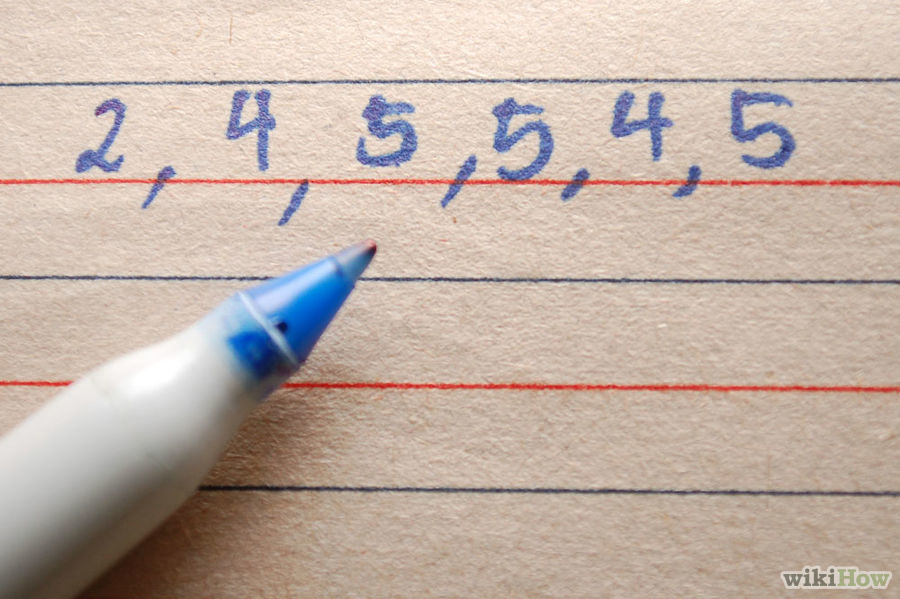 2, 4, 5, 5, 4, 5
wikiHow